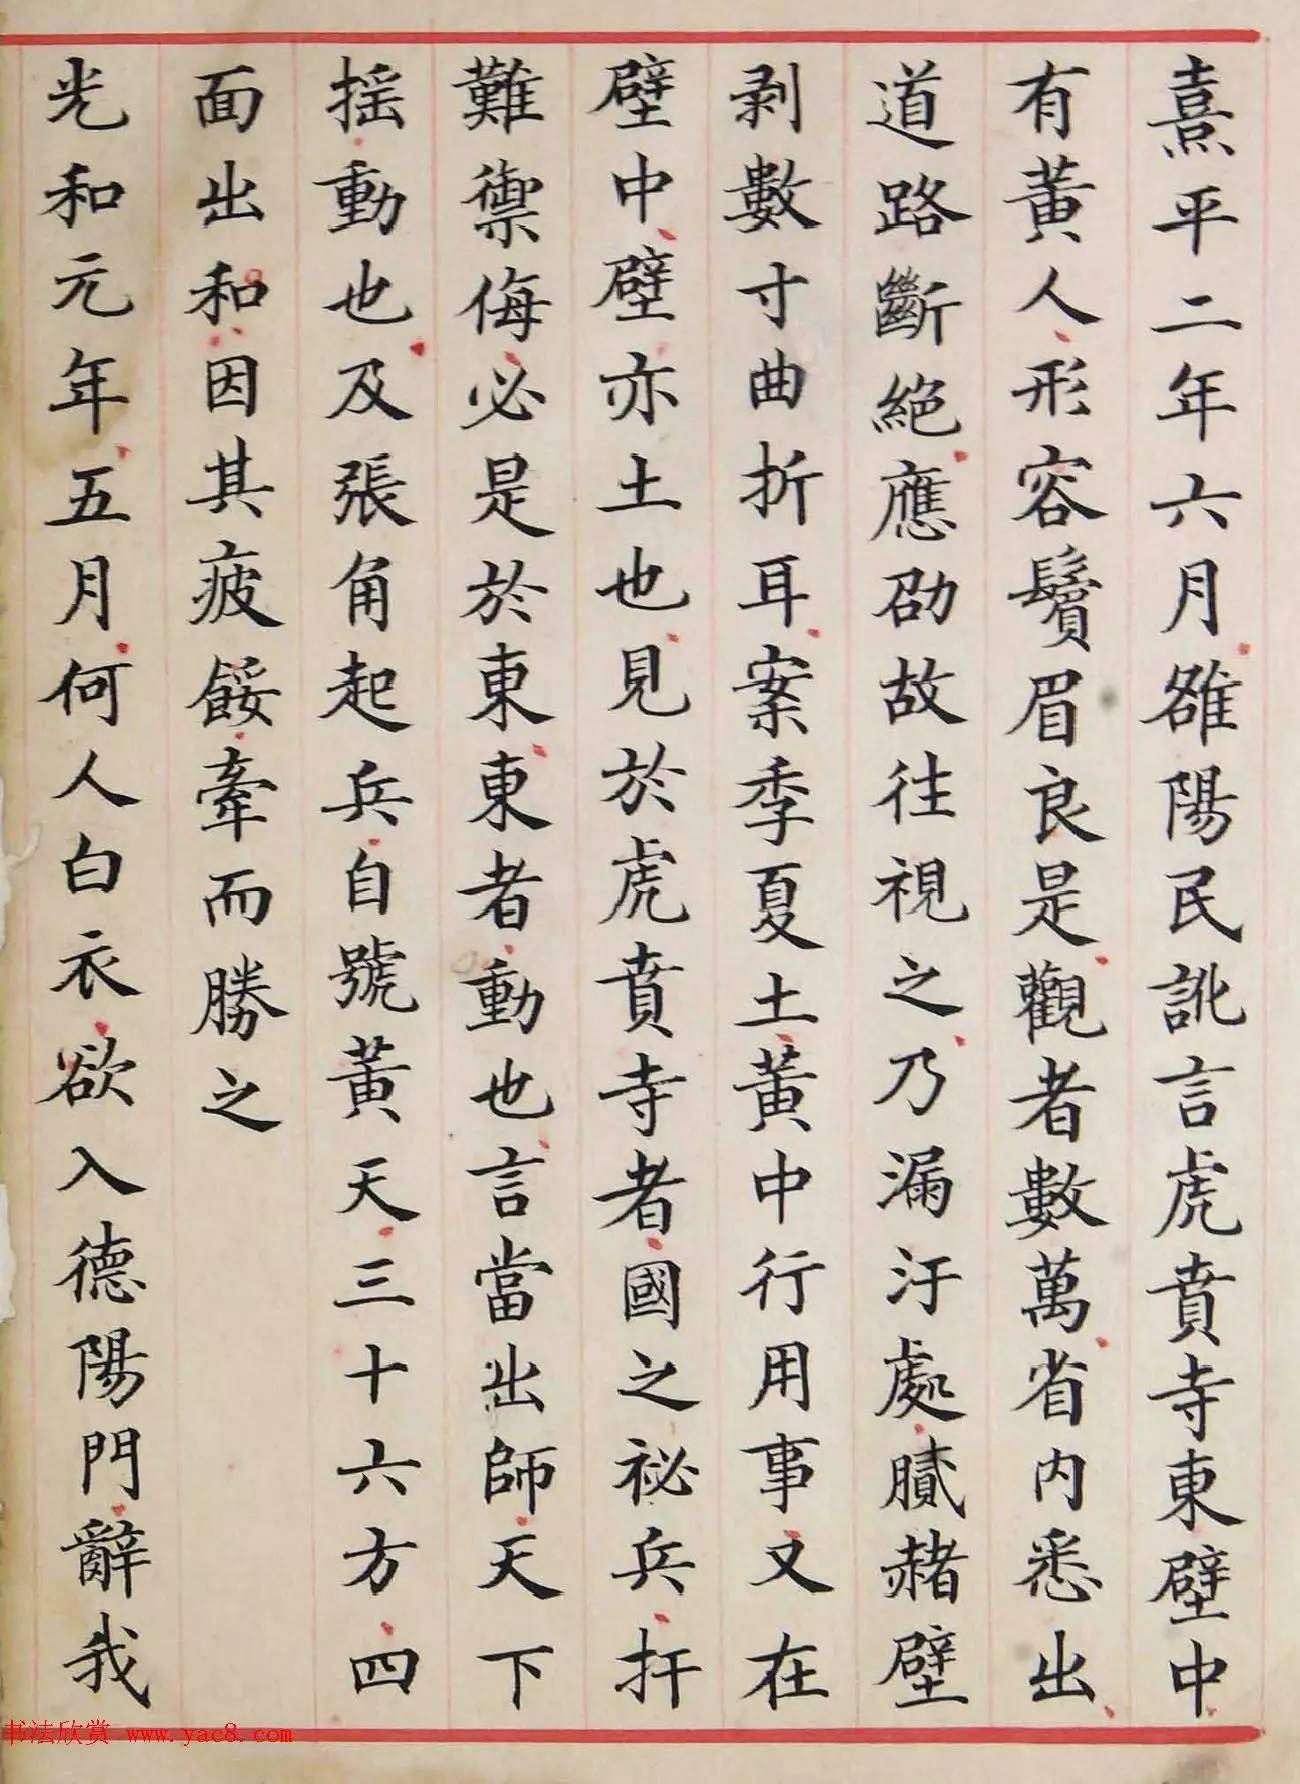 熹平二年六月雒陽民訛言虎賁寺東壁中
有黃人形容鬢眉良是觀者數萬省内悉出
道路斷絕應劭故往視之乃漏汙處膩赭壁
剥數寸曲折耳案季夏土黃中行用事又在
壁中壁亦土也見於虎賁寺者國之祕兵扞
難禦侮必是於東東者動也言當出師天下
摇動也及張角起兵自號黃天三十六方四
面出和因其疲餒牽而勝之
光和元年五月何人白衣欲入德陽門辭我
书法欣赏 www.yac8.com